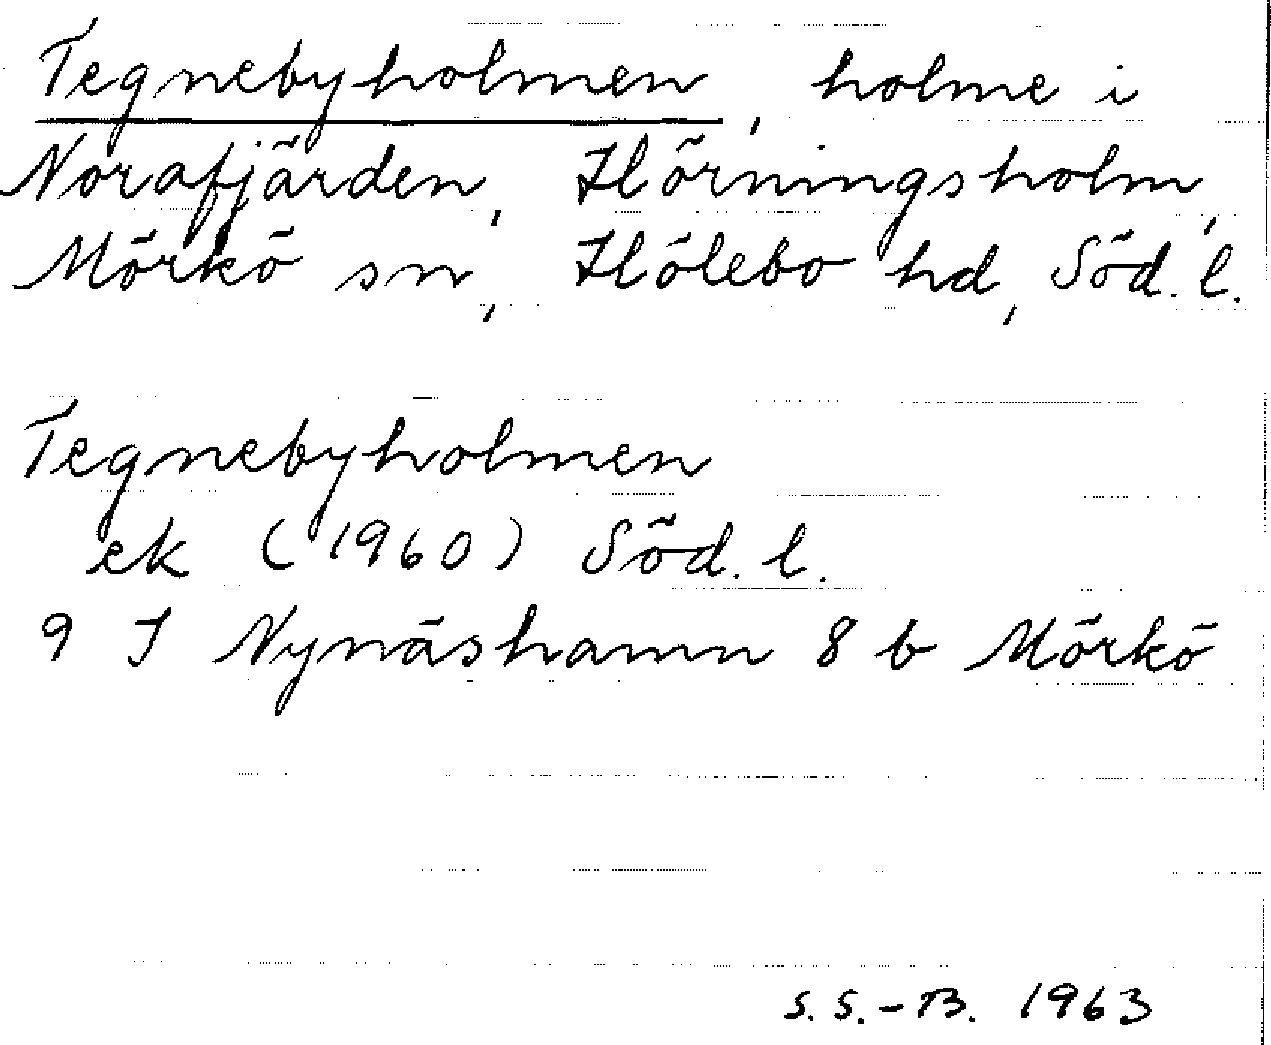 Tegnebyholmen, holme i
Norafjärden, Hörningsholm,
Mörkö sn, Hölebo hd, Söd. l.
Tegnebyholmen
ek (1960) Söd. l.
9 I Nynäshamn 8 b Mörkö
S. S.-B. 1963